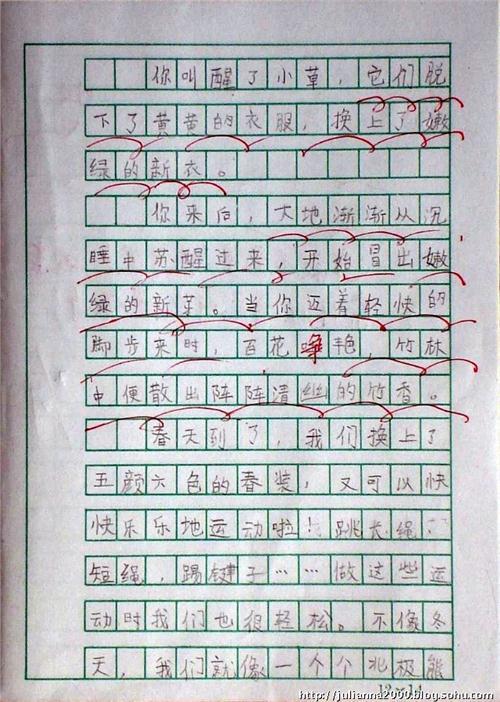 你叫醒了小草，它们脱
下了黄黄的衣服，换上了嫩
绿的新衣。
你来后，大地渐渐从沉
睡中苏醒过来，开始冒出嫩
绿的新芽。当你迈着轻快的
脚步来时，百花争艳，竹林
中便散出阵阵清幽的竹香。
春天到了，我们换上了
五颜六色的春装，又可以快
快乐乐地运动啦！跳长绳、
短绳，踢键子……做这些运
动时我们也很轻松。不像冬
天，我们就像一个个北极熊
http://julianna2000.blog.sohu.com